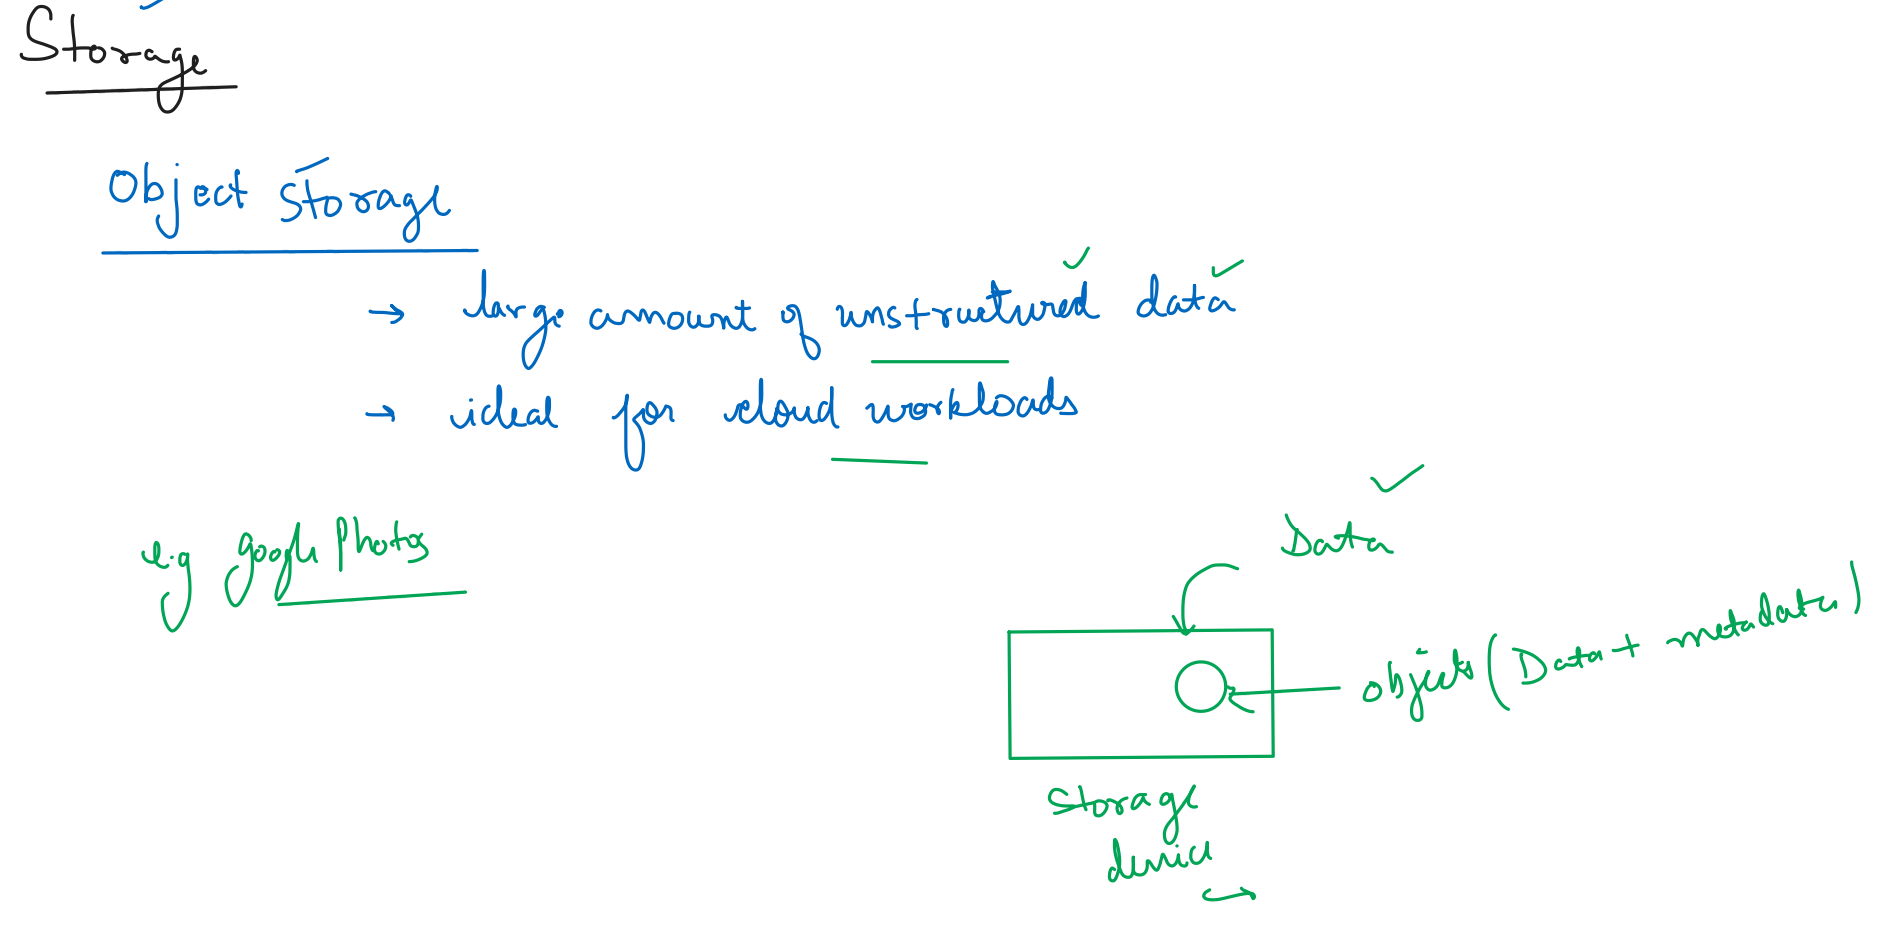 Storage
Object storage
→ large amount of unstructured data
→ ideal for cloud workloads
e.g google Photos
Data
objects (Data + metadata)
storage
device